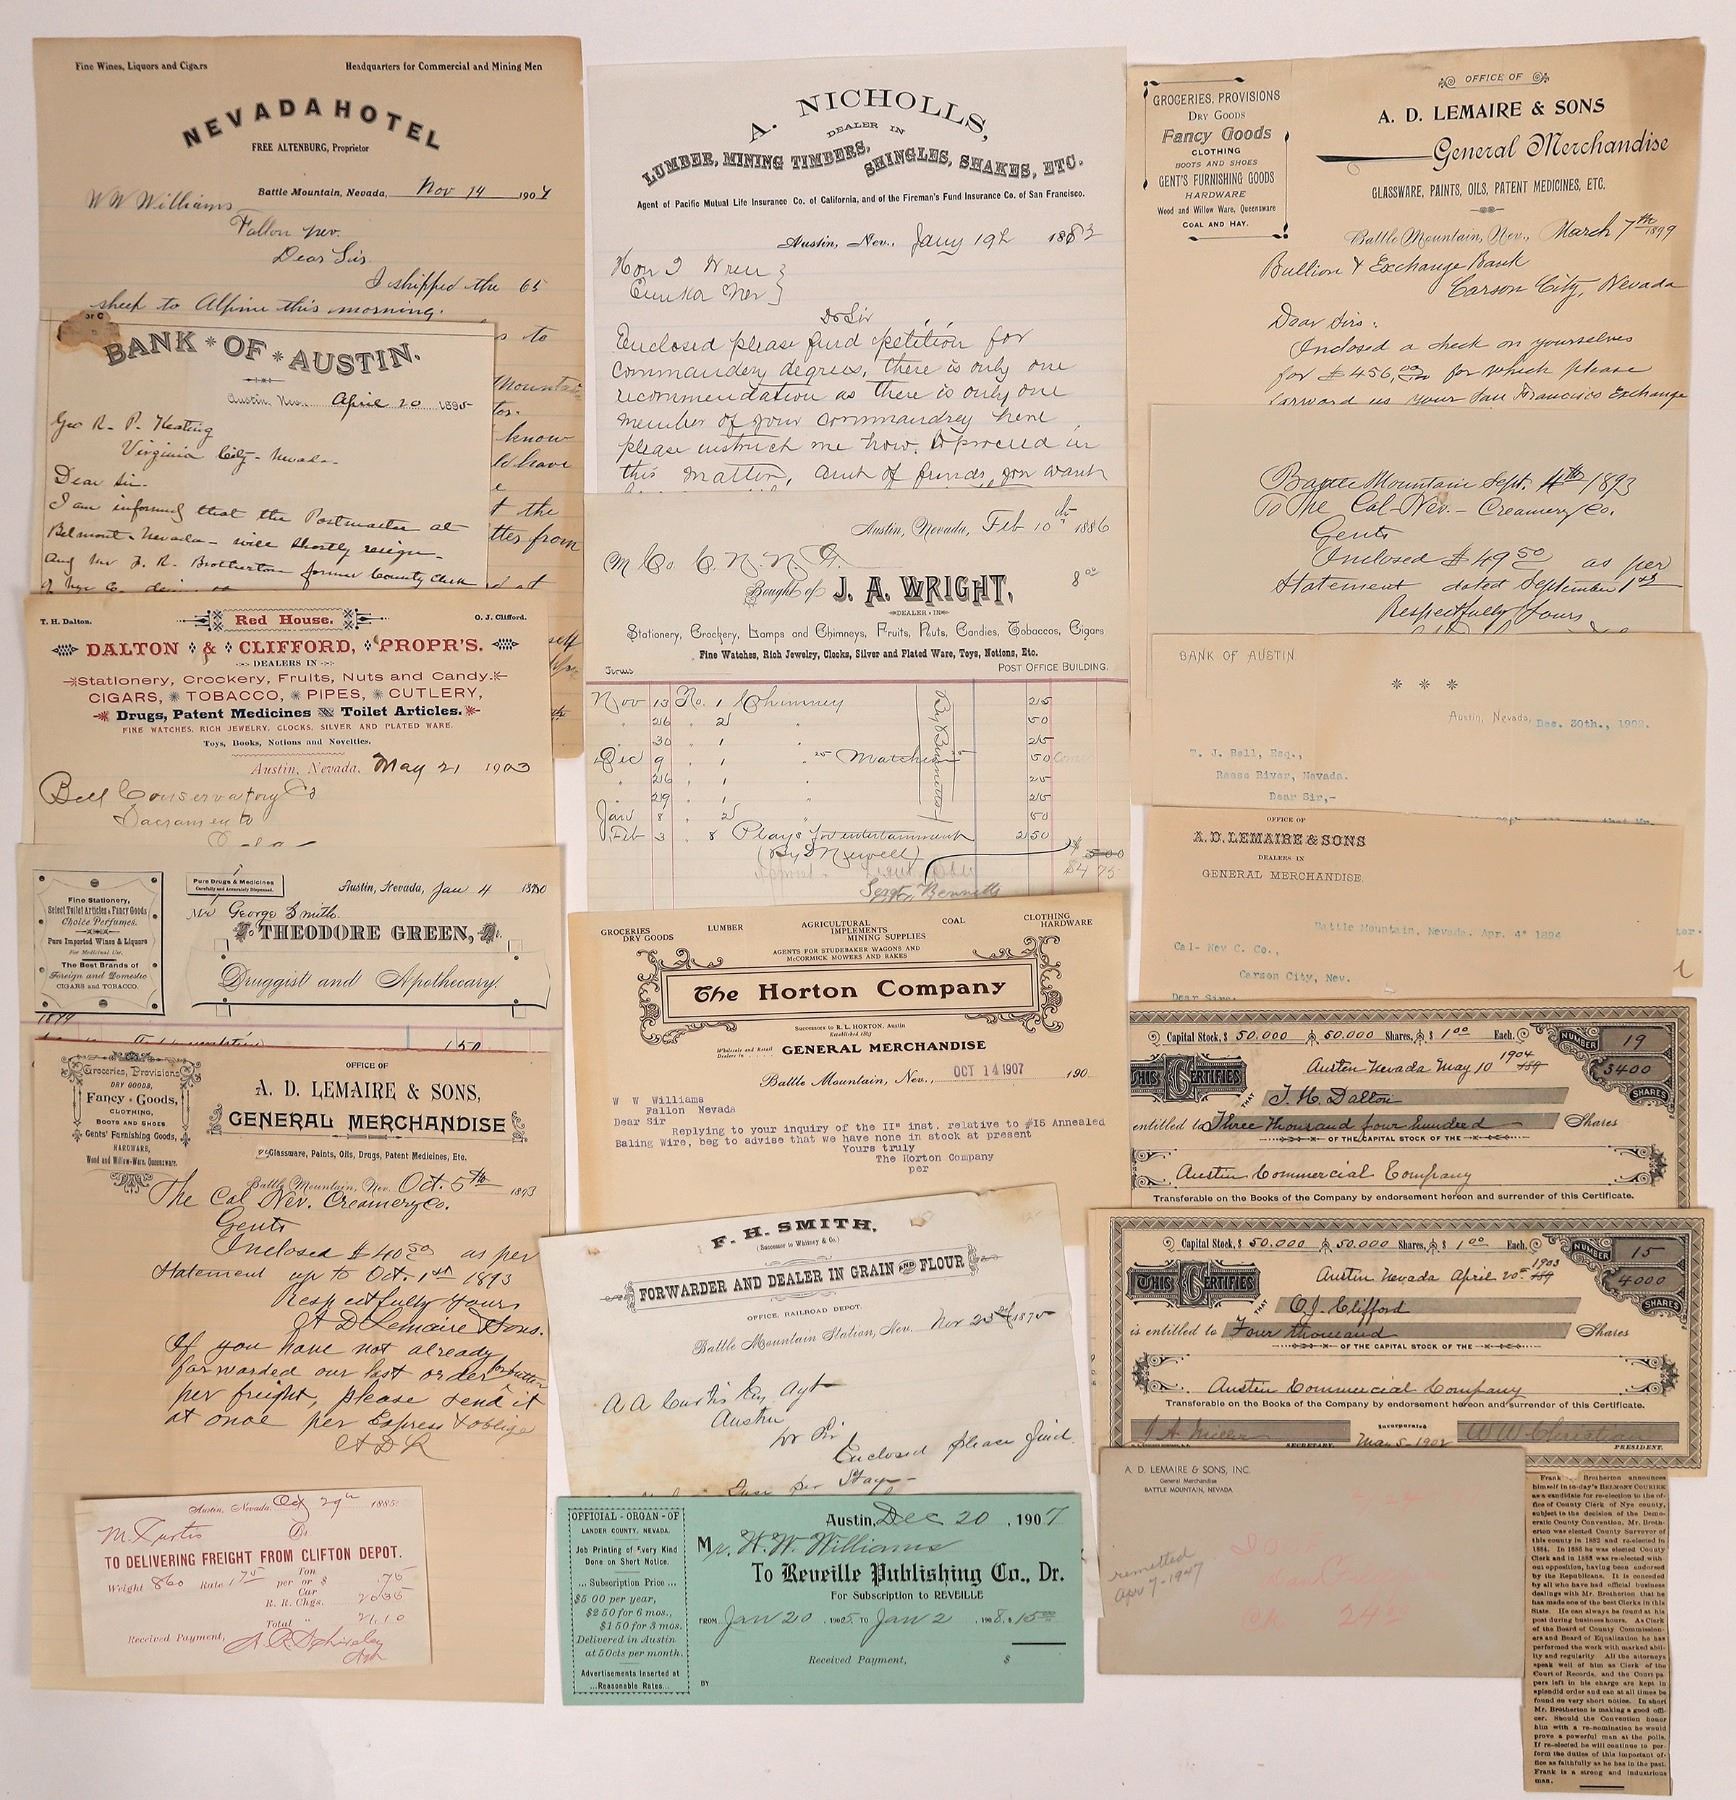 Fine Wines, Liquors and Cigars
Headquarters for Commercial and Mining Men
NEVADA HOTEL
FREE ALTENBURG, Proprietor
Battle Mountain, Nevada, Nov 14 1907
W W Williams
Fallon Nev.
Dear Sir
I shipped the 65
sheep to Alpine this morning.
s to
Mountain
know
ld have
t the
ttes from
BANK * OF * AUSTIN.
Austin, Nev. April 20 1895
Geo R. P. Keating
Virginia City - Nevada -
Dear Sir -
I am informed that the Postmaster at
Belmont - Nevada - will shortly resign -
and Mr F. R. Brotherton former County Clerk
of Nye Co.
T. H. Dalton.
Red House.
O. J. Clifford.
DALTON & CLIFFORD, PROPR'S.
DEALERS IN
Stationery, Crockery, Fruits, Nuts and Candy.
CIGARS, * TOBACCO, * PIPES, * CUTLERY,
Drugs, Patent Medicines Toilet Articles.
FINE WATCHES, RICH JEWELRY, CLOCKS, SILVER AND PLATED WARE.
Toys, Books, Notions and Novelties.
Austin, Nevada, May 21 1903
Bell Conservatory Co
Sacramento
Fine Stationery,
Select Toilet Articles & Fancy Goods
Choice Perfumes.
Pure Imported Wines & Liquors
For Medicinal Use.
The Best Brands of
Foreign and Domestic
CIGARS and TOBACCO.
Pure Drugs & Medicines
Carefully and Accurately Dispensed.
Austin, Nevada, Jan 4 1880
Mr George Smith
To THEODORE GREEN, Dr.
Druggist and Apothecary.
1879
1 50
Groceries, Provisions
DRY GOODS,
Fancy Goods,
CLOTHING,
BOOTS AND SHOES
Gents' Furnishing Goods,
HARDWARE,
Wood and Willow-Ware, Queensware.
OFFICE OF
A. D. LEMAIRE & SONS,
GENERAL MERCHANDISE
Glassware, Paints, Oils, Drugs, Patent Medicines, Etc.
Battle Mountain, Nev. Oct. 5th 1893
The Cal Nev. Creamery Co.
Gents
Enclosed $ 40 50 as per
Statement up to Oct. 1st 1893
Respectfully Yours
A D Lemaire & Sons.
If you have not already
forwarded our last order for butter
per freight, please send it
at once per Express & oblige
A D L
Austin, Nevada. Oct 29th 1885
M. Curtis Dr.
TO DELIVERING FREIGHT FROM CLIFTON DEPOT.
Weight 860 Rate 1 75 per Ton or Car $ .75
R. R. Chgs. 20.35
Total " 21.10
Received Payment,
A. NICHOLLS,
DEALER IN
LUMBER, MINING TIMBERS, SHINGLES, SHAKES, ETC.
Agent of Pacific Mutual Life Insurance Co. of California, and of the Fireman's Fund Insurance Co. of San Francisco.
Austin, Nev., Jany 19th 1883
Hon T Wren
Eureka Nev
Dr Sir
Enclosed please find petition for
commandery degrees, there is only one
recommendation as there is only one
member of your commandery here,
please instruct me how to proceed in
this matter, amt of funds you want
Austin, Nevada, Feb 10th 1886
M Co. C. N. N. G.
8 00
Bought of J. A. WRIGHT,
DEALER IN
Stationery, Crockery, Lamps and Chimneys, Fruits, Nuts, Candies, Tobaccos, Cigars
Fine Watches, Rich Jewelry, Clocks, Silver and Plated Ware, Toys, Notions, Etc.
Terms
POST OFFICE BUILDING.
Nov 13 No. 1 Chimney 25
" 26 " 2 " 50
" 30 " 1 " 25
Dec 9 " 1 " 25 Matches 25 50
" 26 " 1 25
" 29 " 1 25
Jan 8 " 2 50
Feb 3 " 8 Plays for entertainment 2 50
By Bennetts
(By D Newell)
$ 5 00
$4 75
Sergt Bennetts
GROCERIES
DRY GOODS
LUMBER
AGRICULTURAL
IMPLEMENTS
MINING SUPPLIES
COAL
CLOTHING
HARDWARE
AGENTS FOR STUDEBAKER WAGONS AND
McCORMICK MOWERS AND RAKES
The Horton Company
Successors to R. L. HORTON, Austin
Established 1863
Wholesale and Retail
Dealers in
GENERAL MERCHANDISE
Battle Mountain, Nev., OCT 14 1907 190
W W Williams
Fallon Nevada
Dear Sir
Replying to your inquiry of the II" inst. relative to #I5 Annealed
Baling Wire, beg to advise that we have none in stock at present
Yours truly
The Horton Company
per
F. H. SMITH,
(Successor to Whitney & Co.)
FORWARDER AND DEALER IN GRAIN AND FLOUR
OFFICE, RAILROAD DEPOT.
Battle Mountain Station, Nev. Nov 23rd 1875
A A Curtis Esq Agt
Austin
Dr Sir
Enclosed please find
per Stage
OFFICIAL - ORGAN - OF
LANDER COUNTY, NEVADA.
Job Printing of Every Kind
Done on Short Notice.
... Subscription Price ...
$5 00 per year,
$2 50 for 6 mos.,
$1 50 for 3 mos.
Delivered in Austin
at 50cts per month.
Advertisements Inserted at
...Reasonable Rates...
Austin, Dec 20, 1907
Mr. W. W. Williams
To Reveille Publishing Co., Dr.
For Subscription to REVEILLE
FROM Jan 20, 1905 TO Jan 2, 1908, $ 15 00
Received Payment, $
BY
GROCERIES, PROVISIONS
DRY GOODS
Fancy Goods
CLOTHING
BOOTS AND SHOES
GENT'S FURNISHING GOODS
HARDWARE
Wood and Willow Ware, Queensware
COAL AND HAY.
OFFICE OF
A. D. LEMAIRE & SONS
General Merchandise
GLASSWARE, PAINTS, OILS, PATENT MEDICINES, ETC.
Battle Mountain, Nev., March 7th 1899
Bullion & Exchange Bank
Carson City, Nevada
Dear Sirs:
Enclosed a check on yourselves
for $ 456, for which please
forward us your San Francisco Exchange
Battle Mountain Sept. 4th 1893
To The Cal-Nev. - Creamery Co.
Gents
Enclosed $ 49 50 as per
Statement dated September 1st
Respectfully Yours
BANK OF AUSTIN.
* * *
Austin, Nevada, Dec. 30th.,
T. J. Bell, Esq.,
Reese River, Nevada.
Dear Sir,-
OFFICE OF
A. D. LEMAIRE & SONS
DEALERS IN
GENERAL MERCHANDISE.
Battle Mountain, Nevada, Apr. 4" 1894
Cal- Nev C. Co.,
Carson City, Nev.
Dear Sirs:
Capital Stock, $ 50.000 50.000 Shares, $ 1 00 Each.
NUMBER 19
3400 SHARES
Austin Nevada May 10 1904
THIS CERTIFIES THAT T. H. Dalton
entitled to Three thousand four hundred Shares
OF THE CAPITAL STOCK OF THE
Austin Commercial Company
Transferable on the Books of the Company by endorsement hereon and surrender of this Certificate.
Capital Stock, $ 50.000 50.000 Shares, $ 1 00 Each.
NUMBER 15
4000 SHARES
Austin Nevada April 20th 1903
THIS CERTIFIES THAT O. J. Clifford
is entitled to Four thousand Shares
OF THE CAPITAL STOCK OF THE
Austin Commercial Company
Transferable on the Books of the Company by endorsement hereon and surrender of this Certificate.
J A Miller SECRETARY.
Incorporated
May 5 - 1902
W W Christian PRESIDENT.
A. D. LEMAIRE & SONS, INC.
General Merchandise
BATTLE MOUNTAIN, NEVADA
remitted
Apr 7-1947
CK
Frank Brotherton announces
himself in to-day's BELMONT COURIER
as a candidate for re-election to the of-
fice of County Clerk of Nye county,
subject to the decision of the Demo-
cratic County Convention. Mr. Broth-
erton was elected County Surveyor of
this county in 1882 and re-elected in
1884. In 1886 he was elected County
Clerk and in 1888 was re-elected with-
out opposition, having been endorsed
by the Republicans. It is conceded
by all who have had official business
dealings with Mr. Brotherton that he
has made one of the best Clerks in this
State. He can always be found at his
post during business hours. As Clerk
of the Board of County Commission-
ers and Board of Equalization he has
performed the work with marked abil-
ity and regularity. All the attorneys
speak well of him as Clerk of the
Court of Records, and the Court pa-
pers left in his charge are kept in
splendid order and can at all times be
found on very short notice. In short
Mr. Brotherton is making a good offi-
cer. Should the Convention honor
him with a re-nomination he would
prove a powerful man at the polls.
If re-elected he will continue to per-
form the duties of this important of-
fice as faithfully as he has in the past.
Frank is a strong and industrious
man.